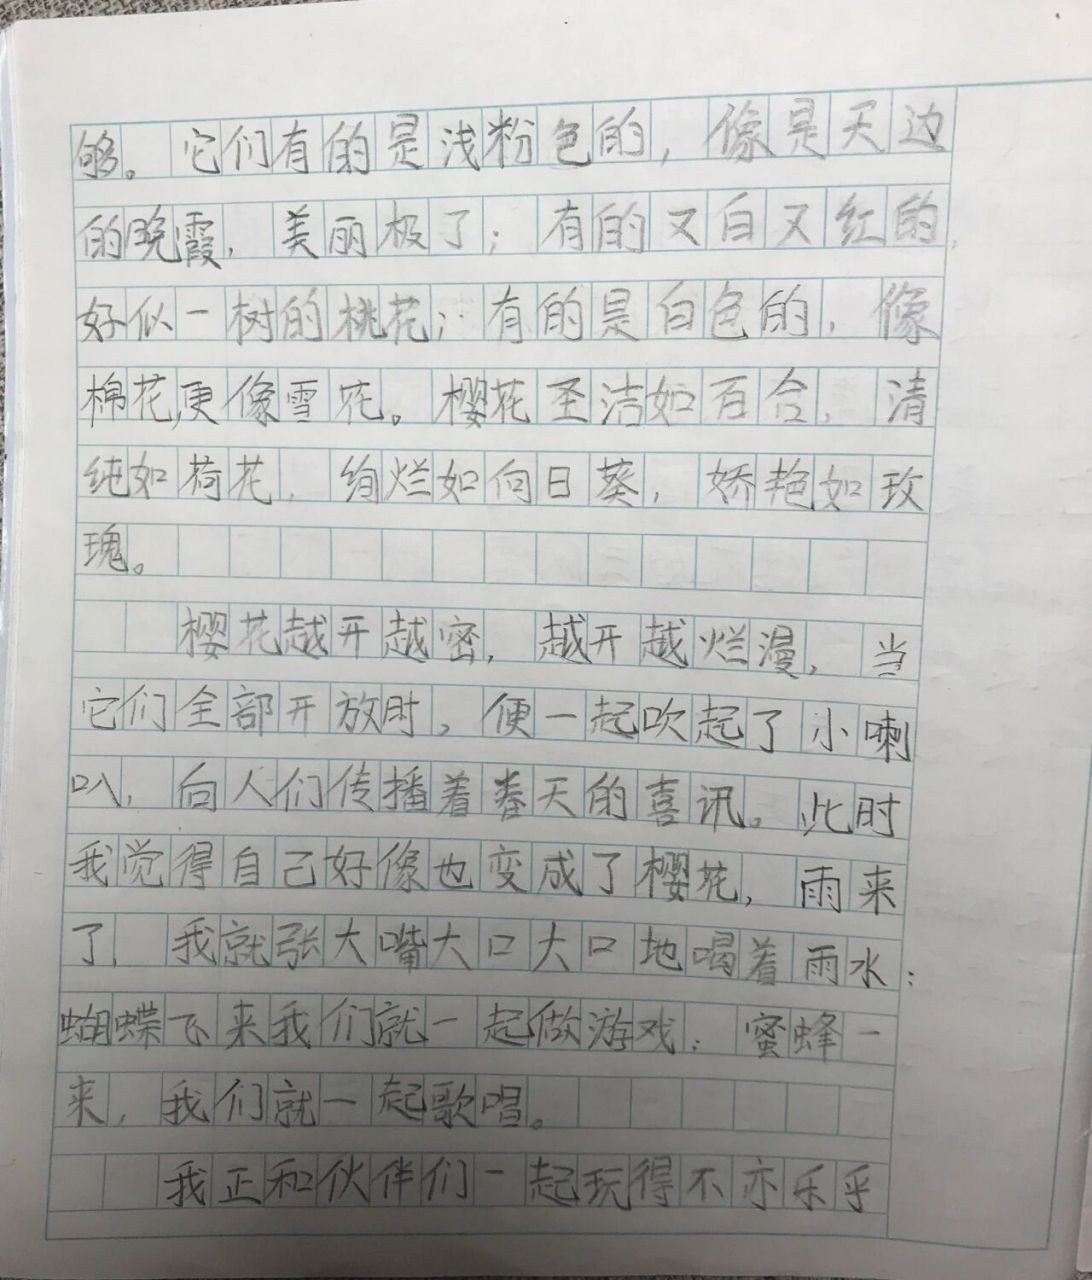 够。它们有的是浅粉色的，像是天边
的晚霞，美丽极了；有的又白又红的，
好似一树的桃花；有的是白色的，像
棉花，更像雪花。樱花圣洁如百合，清
纯如荷花，绚烂如向日葵，娇艳如玫
瑰。
樱花越开越密，越开越烂漫，当
它们全部开放时，便一起吹起了小喇
叭，向人们传播着春天的喜讯。此时
我觉得自己好像也变成了樱花，雨来
了，我就张大嘴大口大口地喝着雨水；
蝴蝶飞来我们就一起做游戏；蜜蜂一
来，我们就一起歌唱。
我正和伙伴们一起玩得不亦乐乎